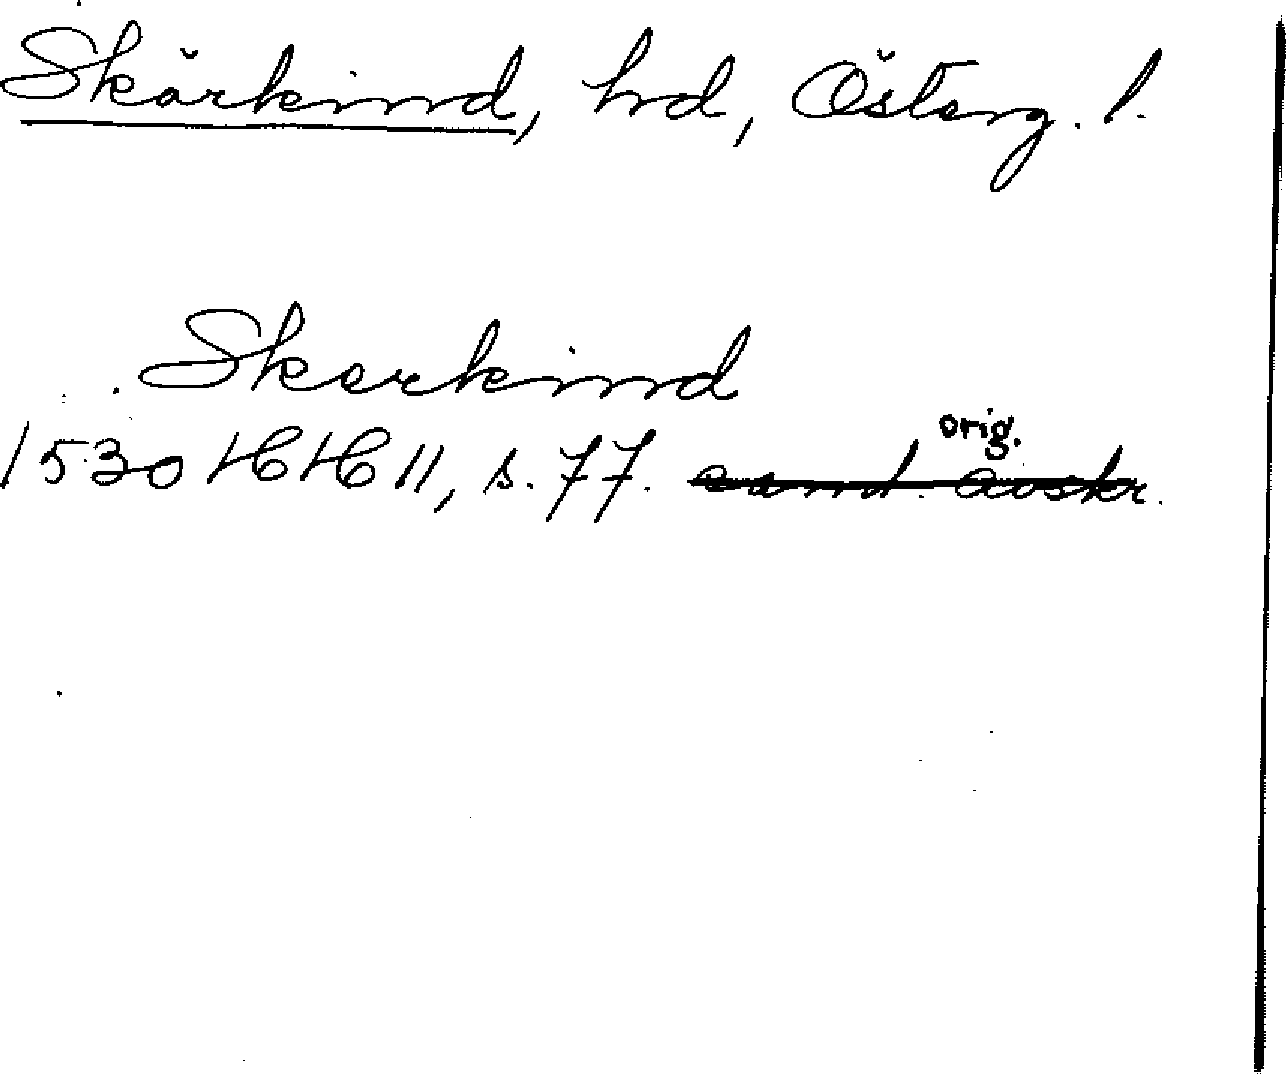 Skärkind, hd, Österg. l.
Skerkind
orig.
1530 HH 11, s. 77. samt. avskr.